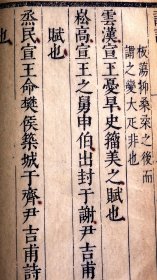 板蕩抑桑柔之後而
謂之變大疋非也
雲漢宣王憂旱史籀美之賦也
崧高宣王之舅申伯出封于謝尹吉甫
賦也
烝民宣王命樊侯築城于齊尹吉甫詩
也